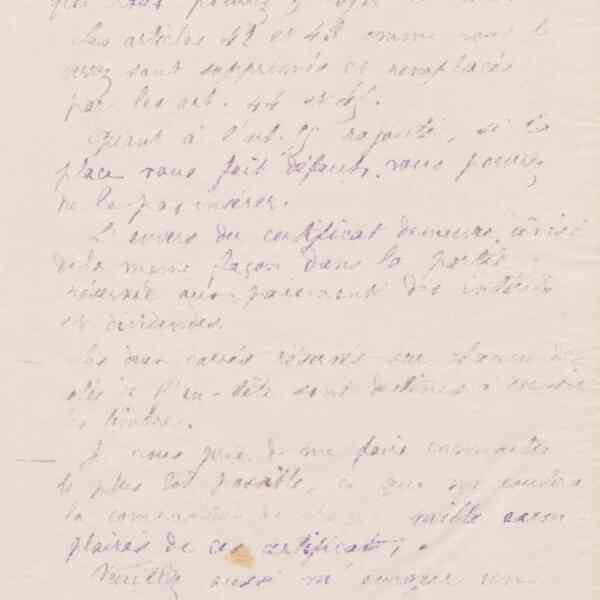 que vous pouvez y
Les articles 42 et 43 comme vous le
sont supprimés et remplacés
par les art. 44 et 45.
Quant à l'art. rajouté, si la
place vous fait défaut, vous pouvez
ne le pas insérer.
L'envers du certificat demeure divisé
de la meme façon dans la partie
réservée aux paiement des intérêts
et dividendes.
Les deux carrés réservés sur chacun des
côtés de l'en-tête sont destinés à recevoir
les timbres.
Je vous prie de me faire connaitre
le plus tôt possible, ce que me coutera
la commande de mille exem-
plaires de ces certificats.
Veuillez aussi m'envoyer un